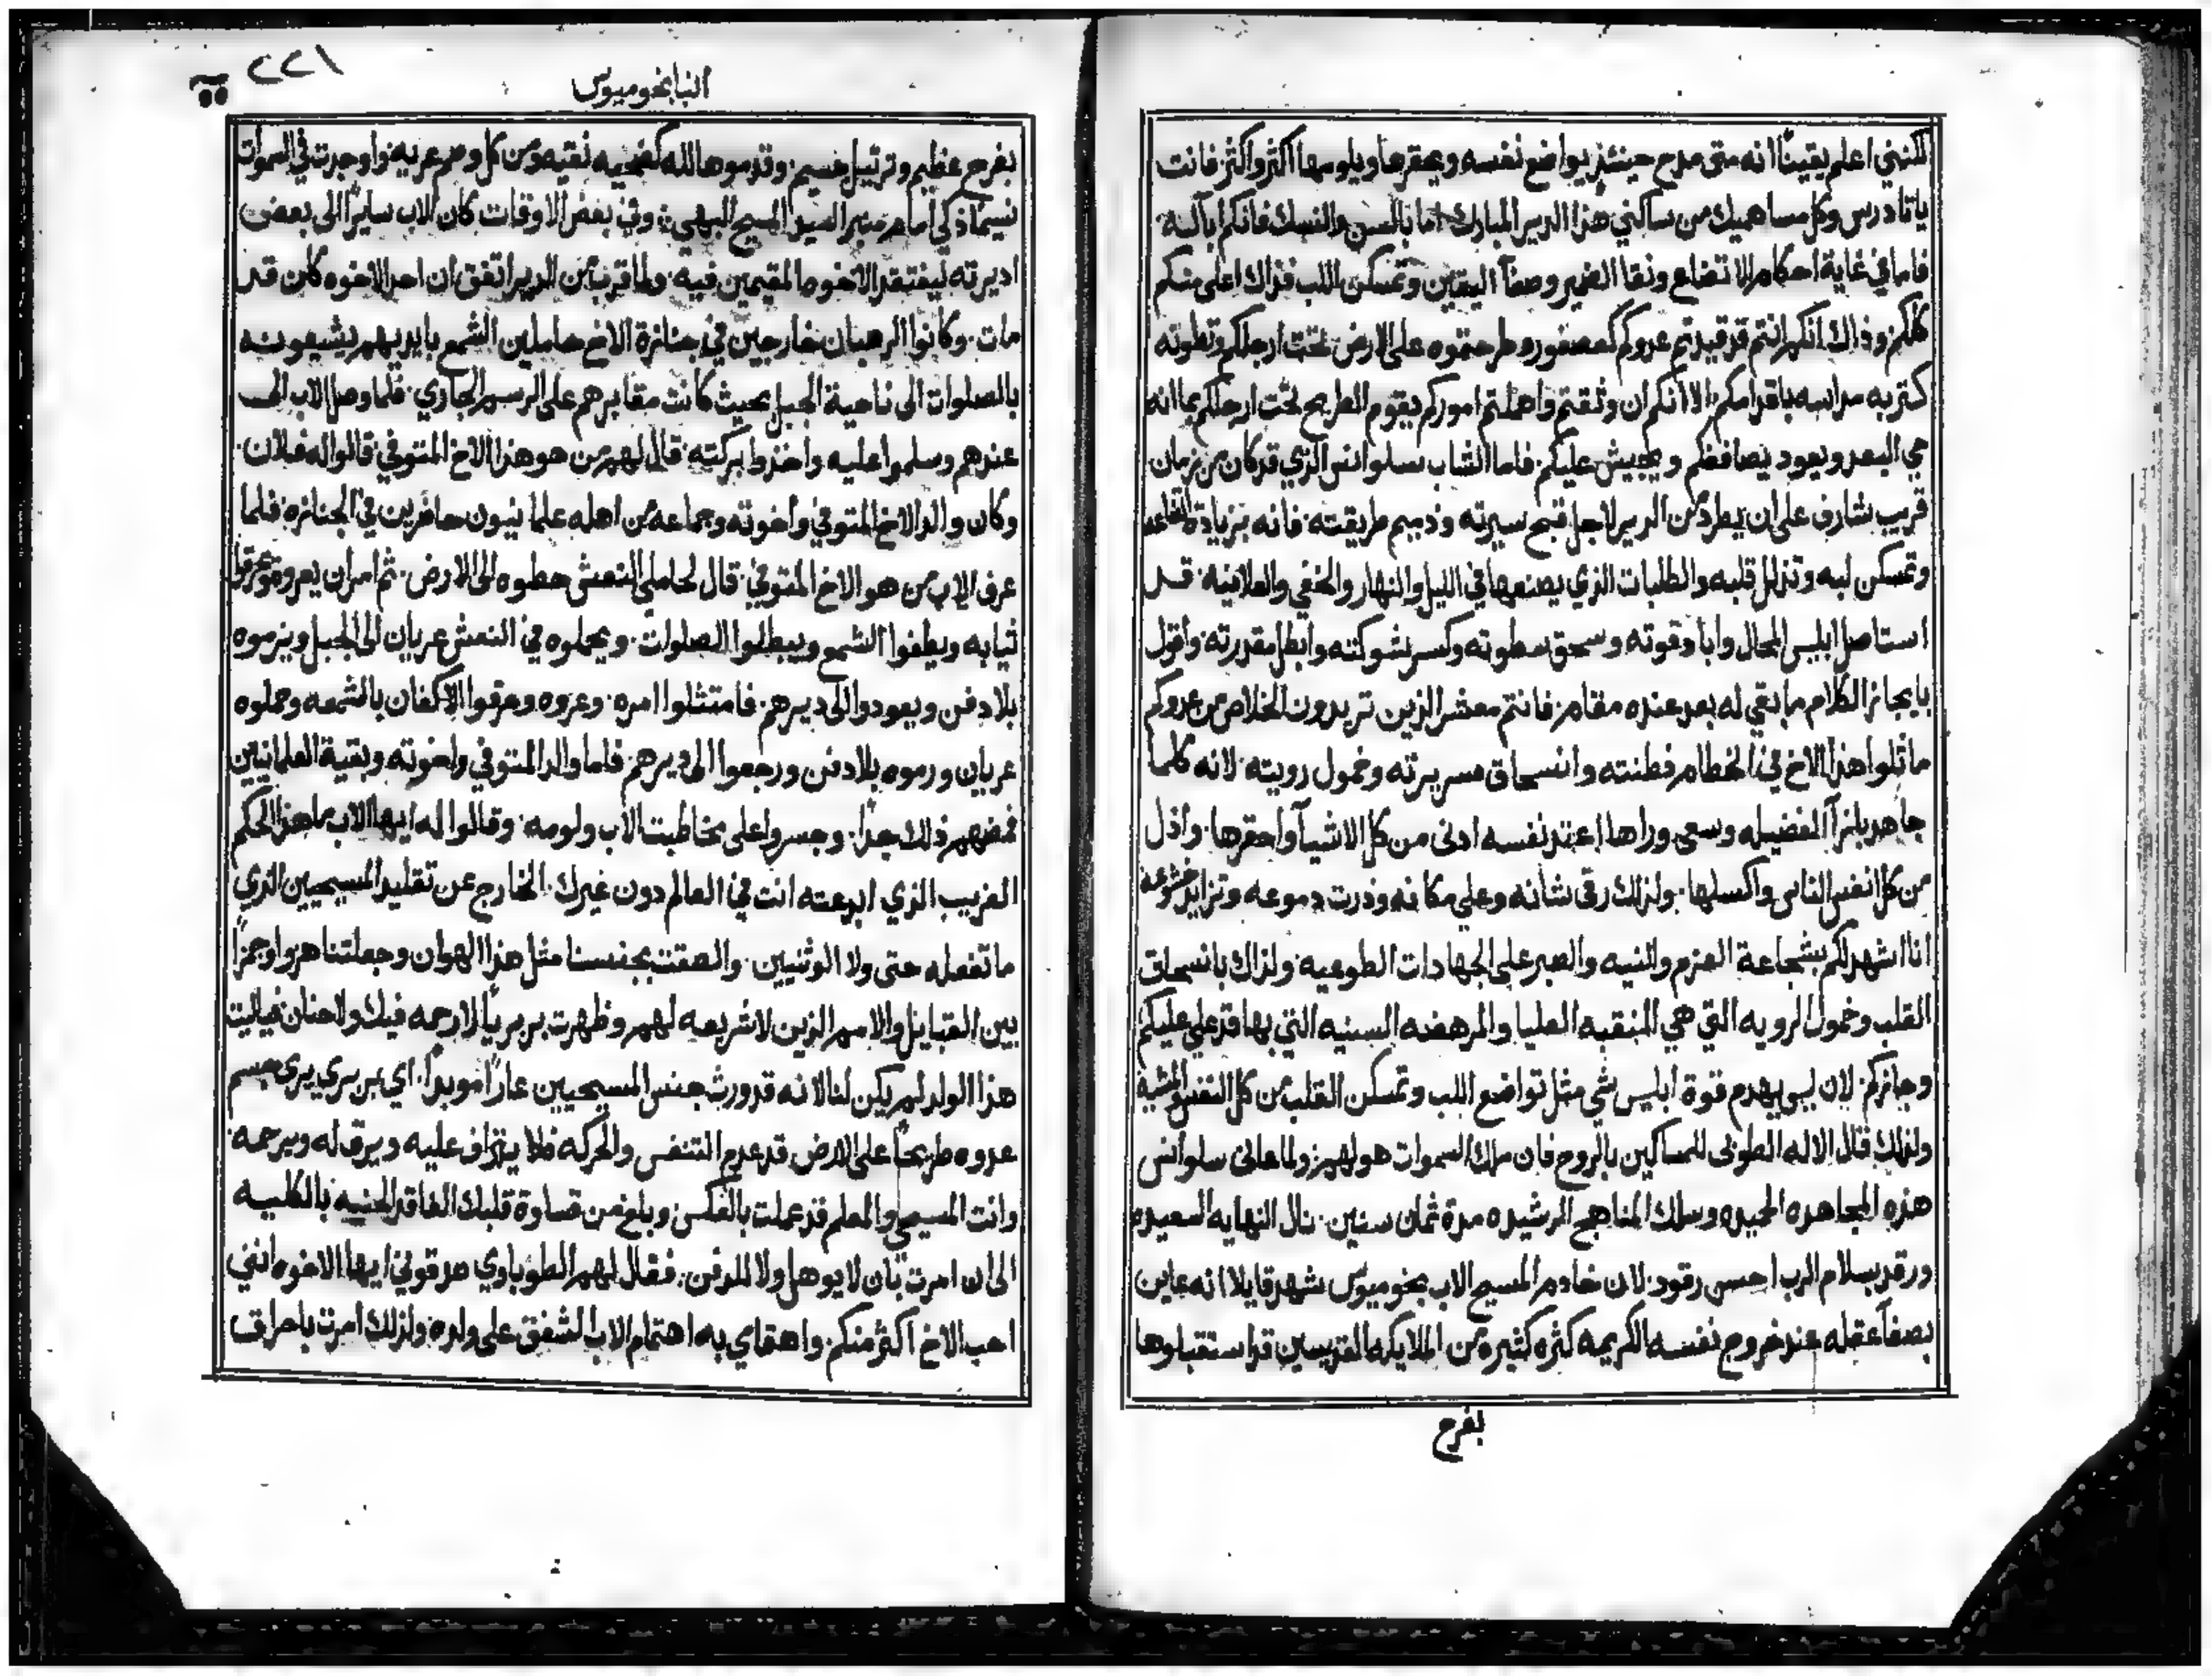 لكنني اعلم يقيناً انه متى مدح حينئذ يواضع نفسه ويحقرها ويلومها اكثر واكثر فانت
ياتادرس وكل مساهميك من ساكني هذا الدير المبارك اما بالسن والنسك فانكم اباله
فاما في غاية احكام الاتضاع ونقا الضمير وصفآ اليقين وتمسكن اللب فذاك اعلى منكم
كلكم وذاك انكم انتم قد قيدتم عدوكم كعصفور وطرحتموه على الارض تحت ارجلكم وتطوته
كتربه مداسه باقدامكم الا انكم ان وثقتم واهملتم اموركم يقوم الطريح تحت ارجلكم بما انه
حي البعد ويعود يصافحكم ويجيش عليكم فاما الشاب سلوانس الذي قد كان من زمان
قريب شارف على ان يطرد من الدير لاجل قبح سيرته وذميم طريقته فانه بزيادة اتضاعه
وتمسكن لبه وتذلل قلبه والطلبات الذي يصنعها في الليل والنهار والخفي والعلانيه قد
استاصل ابليس المحال وابادقوته وسحق سطوته وكسر شوكته وابطل مقدرته واقول
بايجاز الكلام ما بقي له بعد عنده مقام فانتم معشر الذين تريدون الخلاص من عدوكم
ماثلوا هذا الاخ في انحطام فطنته وانسحاق سريرته وخمول رويته لانه كلما
جاهد بلزآ الفضيله وسعى وراها اعتد نفسه ادنى من كل الاشيآ واحقرها واذل
من كل انفس الناس واكسلها ولذلك رق شانه وعلى مكانه ودرت دموعه وتزايد خشوعه
انا اشهد لكم بشجاعة العزم والنيه والصبر على الجهادات الطوعيه ولذاك بانسحاق
القلب وخمول الرويه التي هي المنقبه العليا والمرهفه السنيه التي بها قد على عليكم
وجازكم لان ليس يهدم قوة ابليس شي مثل تواضع اللب وتمسكن القلب من كل النفس والنيه
ولذلك قال الاله الطوبى للمساكين بالروح فان ملك السموات هو لهم ولما عانى سلوانس
هذه المجاهده الحميده وسلك المناهج الرشيده مدة ثمان سنين نال النهايه السعيده
ورقد بسلام الرب احسن رقود لان خادم المسيح الاب بخوميوس شهد قايلا انه عاين
بصفآ عقله عند خروج نفسه الكريمه كثره كثيره من الملايكه القديسين قد استقبلوها
بفرح
انبا بخوميوس
٢٢١
بفرح عظيم وترتيل جسيم وقدموها لله كضحيه نقيه ومن كل وصم عريه واوجدت في السموات
نسيماً ذكي امام منبر السيد المسيح البهي وفي بعض الاوقات كان الاب سايراً الى بعض
اديرته ليفتقد الاخوه المقيمين فيه ولما قرب من الدير اتفق ان احد الاخوه كان قد
مات وكانوا الرهبان خارجين في جنازة الاخ حاملين الشمع بايديهم يشيعونه
بالصلوات الى ناحية الجبل بحيث كانت مقابرهم على الرسم الجاري فلما وصل الاب الى
عندهم وسلموا عليه واخذوا بركته قال لهم من هو هذا الاخ المتوفي قالوا له فلان
وكان والد الاخ المتوفي واخوته وجماعه من اهله علمانيون حاضرين في الجنازه فلما
عرف الاب من هو الاخ المتوفي قال لحاملي النعش حطوه الى الارض ثم امر ان يعروه ويحرقوا
ثيابه ويطفوا الشمع ويبطلوا الصلوات ويحملوه في النعش عريان الى الجبل ويرموه
بلا دفن ويعودوا الى ديرهم فامتثلوا امره وعروه وحرقوا الاكفان بالشمعه وحملوه
عريان ورموه بلا دفن ورجعوا الى ديرهم فاما والد المتوفي واخوته وبقية العلمانيين
فمضهم ذلك جداً وجسروا على مخاطبت الاب ولومه وقالوا له ايها الاب ما هذا الحكم
الغريب الذي ابدعته انت في العالم دون غيرك الخارج عن تقليد المسيحيين الذي
ما تفعله حتى ولا الوثنيين والصقت بجنسنا مثل هذا الهوان وجعلتنا هزوا وجمزاً
بين القبايل والامم الذين لا شريعه لهم وظهرت بربرياً لا رحمه فيك ولا حنان فياليت
هذا الولد لم يكن لنا لانه قد ورث جنس المسيحيين عاراً موبداً اي بربري يرى جسم
عدوه طريحاً على الارض قد عدم التنفس والحركه فلا يتراف عليه ويرق له ويرحمه
وانت المسيحي والمعلم قد عملت بالعكس وبلغ من قساوة قلبك الفاقد الحنيه بالكليه
الى ان امرت بان لا يوهل ولا للدفن فقال لهم الطوباوي صدقوني ايها الاخوه انني
احب الاخ اكثر منكم واهتماي به اهتمام الاب الشفق على ولده ولذلك امرت باحراق